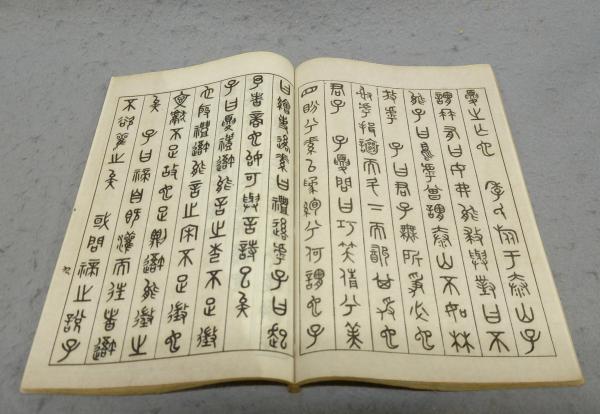 夏之亡也 季氏旅于泰山子
謂冉有曰女弗能救與對曰不
能子曰烏乎曾謂泰山不如林
放乎 子曰君子無所爭必也
射乎揖讓而升下而飲其爭也
君子 子夏問曰巧笑倩兮美
目盼兮素以爲絢兮何謂也子
曰繪事後素曰禮後乎子曰起
予者商也始可與言詩已矣
子曰夏禮吾能言之杞不足徵
也殷禮吾能言之宋不足徵也
文獻不足故也足則吾能徵之
矣 子曰禘自既灌而往者吾
不欲觀之矣 或問禘之說子